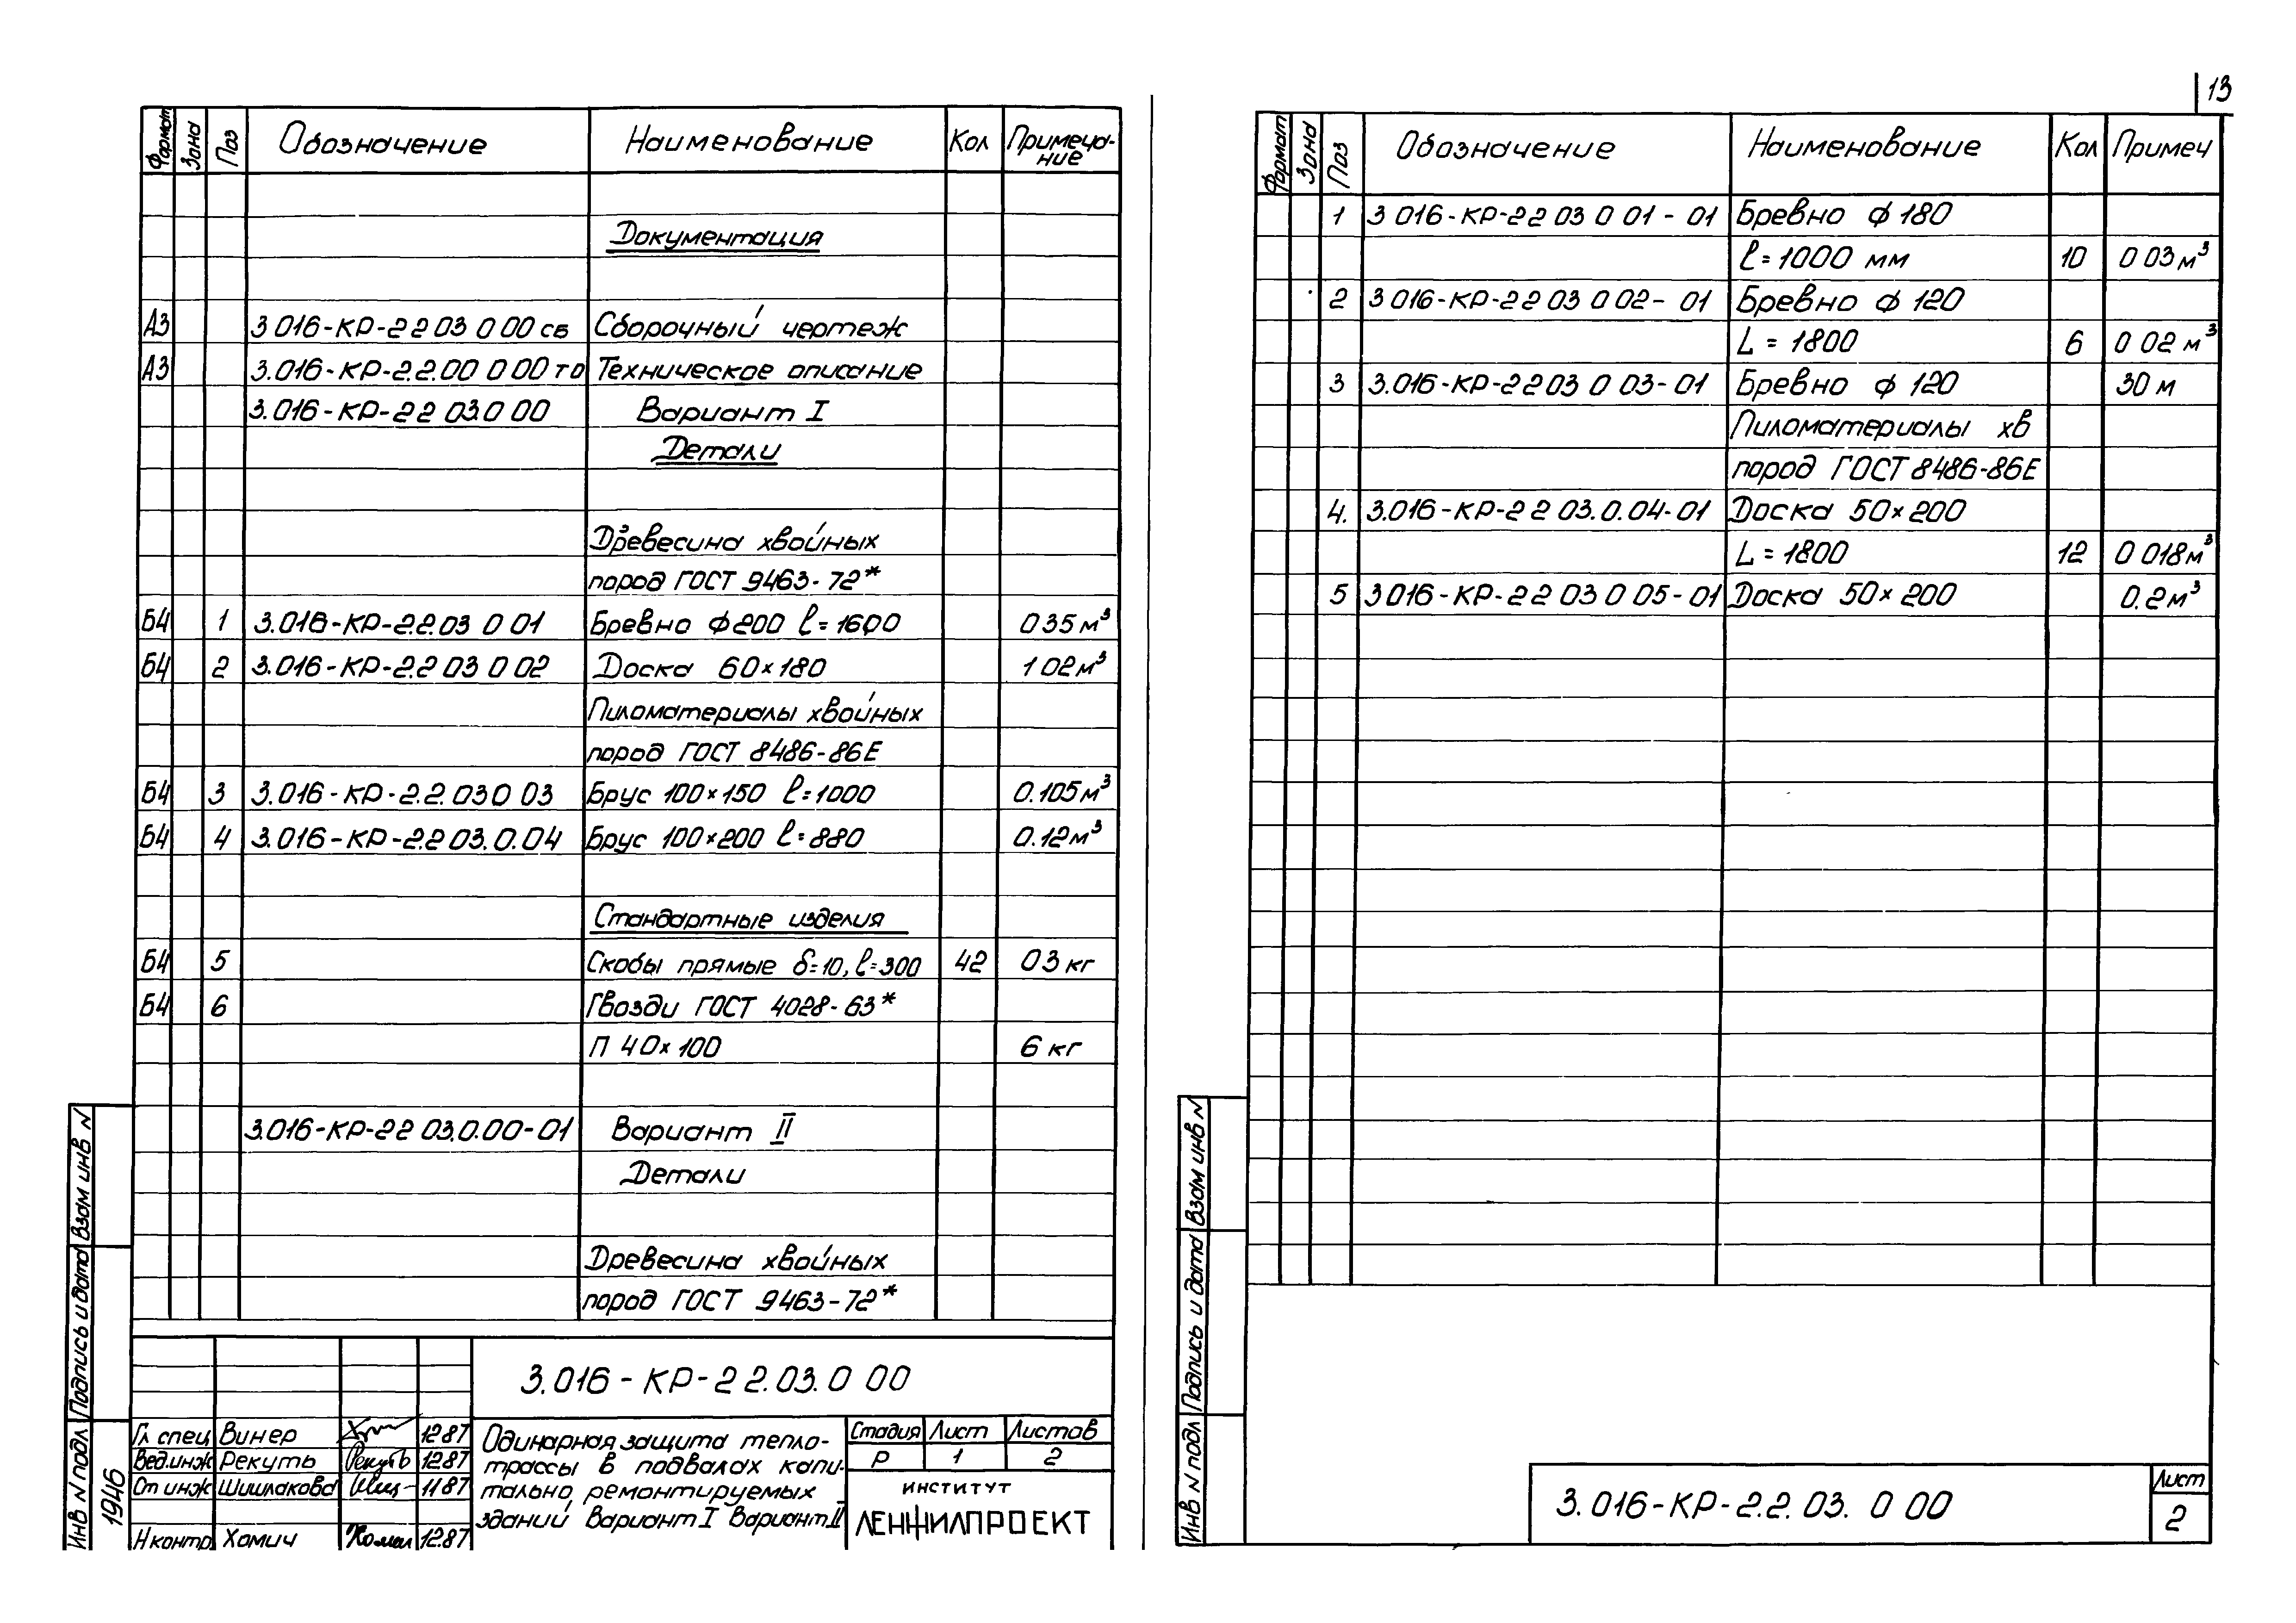 13
Формат Зона Поз Обозначение Наименование Кол Примеча-
ние
Документация
А3 3.016-КР-2 2 03 0 00 СБ Сборочный чертеж
А3 3.016-КР-2.2.00 0 00 ТО Техническое описание
3.016-КР-2 2 03.0 00 Вариант I
Детали
Древесина хвойных
пород ГОСТ 9463-72*
Б4 1 3.016-КР-2.2.03 0 01 Бревно ф 200 ℓ=1600 0 35 м³
Б4 2 3.016-КР-2.2 03 0 02 Доска 60×180 1 02 м³
Пиломатериалы хвойных
пород ГОСТ 8486-86Е
Б4 3 3.016-КР-2.2.03 0 03 Брус 100×150 ℓ=1000 0.105 м³
Б4 4 3.016-КР-2.2 03.0.04 Брус 100×200 ℓ=880 0.12 м³
Стандартные изделия
Б4 5 Скобы прямые δ=10, ℓ=300 42 0 3 кг
Б4 6 Гвозди ГОСТ 4028-63*
П 4 0×100 6 кг
3.016-КР-2 2 03.0.00-01 Вариант II
Детали
Древесина хвойных
пород ГОСТ 9463-72*
Взам инв N
Подпись и дата
Инв N подл
1946
3.016-КР-2 2.03.0 00
Гл спец Винер 12 87
Вед.инж Рекуть Рекуть 12 87
Ст инж Шишлакова 11 87
Н контр Хомич 12.87
Одинарная защита тепло-
трассы в подвалах капи-
тально ремонтируемых
зданий Вариант I Вариант II
Стадия Лист Листов
Р 1 2
ИНСТИТУТ
ЛЕНЖИЛПРОЕКТ
Формат Зона Поз Обозначение Наименование Кол Примеч
1 3 016-КР-2 2 03 0 01-01 Бревно ф 180
ℓ=1000 мм 10 0 03 м³
2 3 016-КР-2 2 03 0 02-01 Бревно ф 120
L=1800 6 0 02 м³
3 3.016-КР-2 2 03 0 03-01 Бревно ф 120 30 м
Пиломатериалы хв
пород ГОСТ 8486-86Е
4. 3.016-КР-2 2 03.0.04-01 Доска 50×200
L=1800 12 0 018 м³
5 3 016-КР-2 2 03 0 05-01 Доска 50×200 0.2 м³
Взам инв N
Подпись и дата
Инв N подл
3.016-КР-2.2.03. 0 00
Лист
2